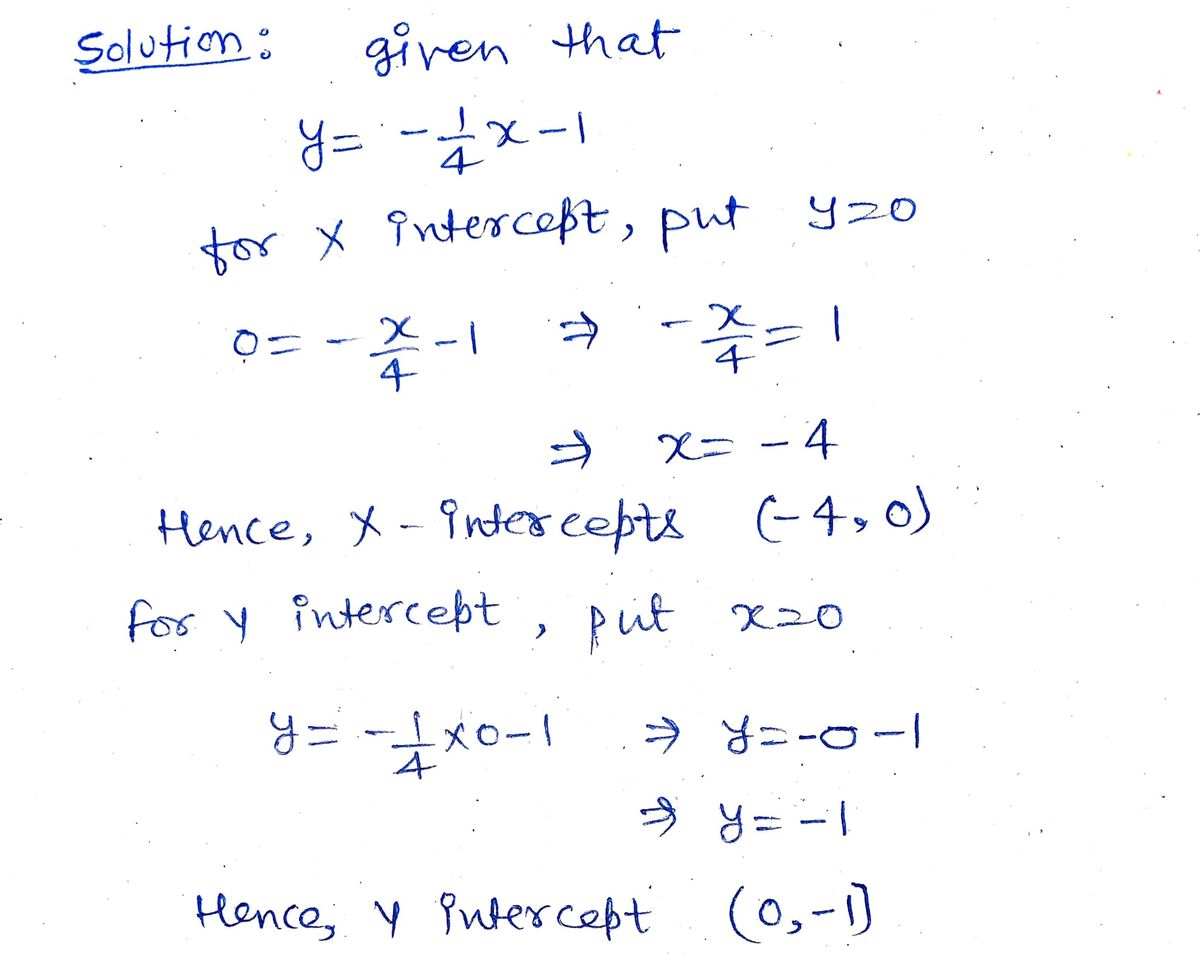 Solution: given that
y = -1/4 x - 1
for x intercept, put y=0
0 = - x/4 - 1 ⇒ - x/4 = 1
⇒ x = - 4
Hence, x - intercepts (-4, 0)
for y intercept, put x=0
y = - 1/4 × 0 - 1 ⇒ y = -0 - 1
⇒ y = - 1
Hence, y intercept (0, -1)